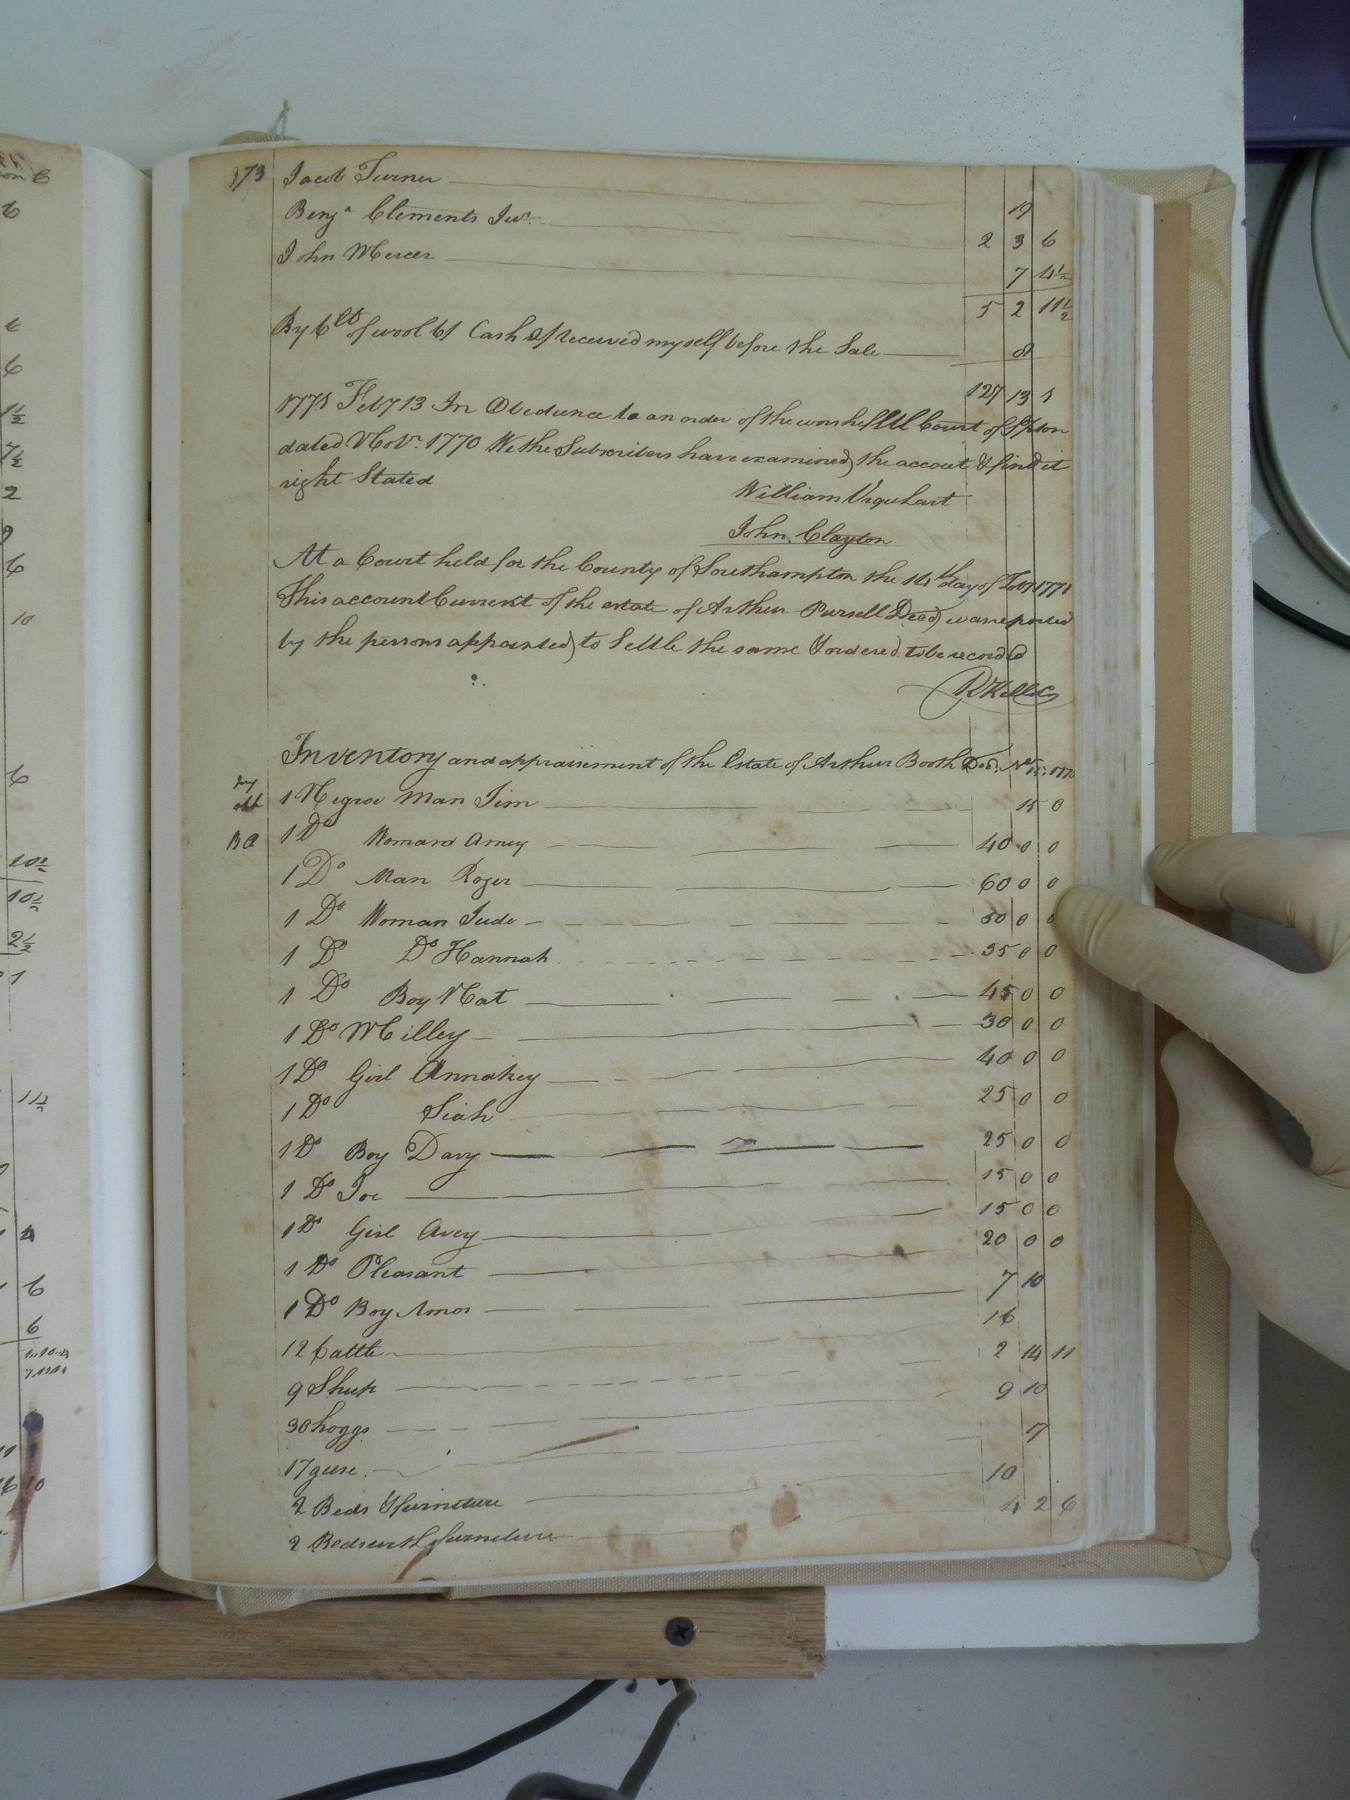 173 Jacob Turner 19
Benja Clements Junr. 2 3 6
John Mercer 7 4½
5 2 11½
By 6 lb of wool & Cash I received myself before the Sale 8
127 13 1
1771 Feby 13 In Obedience to an order of the worshipfull Court of S'pton
dated Novr. 1770 We the Subscribers have examined the accout & find it
right Stated
William Urquhart
John Clayton
At a Court held for the County of Southampton the 14th day of Feby 1771
This account Current of the estate of Arthur Pursell Decd, was reported
by the persons appointed to Settle the same & ordered to be recorded
Inventory and appraisement of the Estate of Arthur Booth Decd.
1 Negroe Man Jim 15 0
B A 1 Do Woman Amey 40 0 0
1 Do Man Roger 60 0 0
1 Do Woman Jude 50 0 0
1 Do Do Hannah 35 0 0
1 Do Boy Nat 45 0 0
1 Do Milley 30 0 0
1 Do Girl Annakey 40 0 0
1 Do Siah 25 0 0
1 Do Boy Davy 25 0 0
1 Do Joe 15 0 0
1 Do Girl Avey 15 0 0
1 Do Pleasant 20 0 0
1 Do Boy Amos 7 10
12 Cattle 16
9 Sheep 2 14 11
30 hoggs 9 10
17 geese 17
2 Beds & furniture 10
2 Beds with furniture 4 2 6